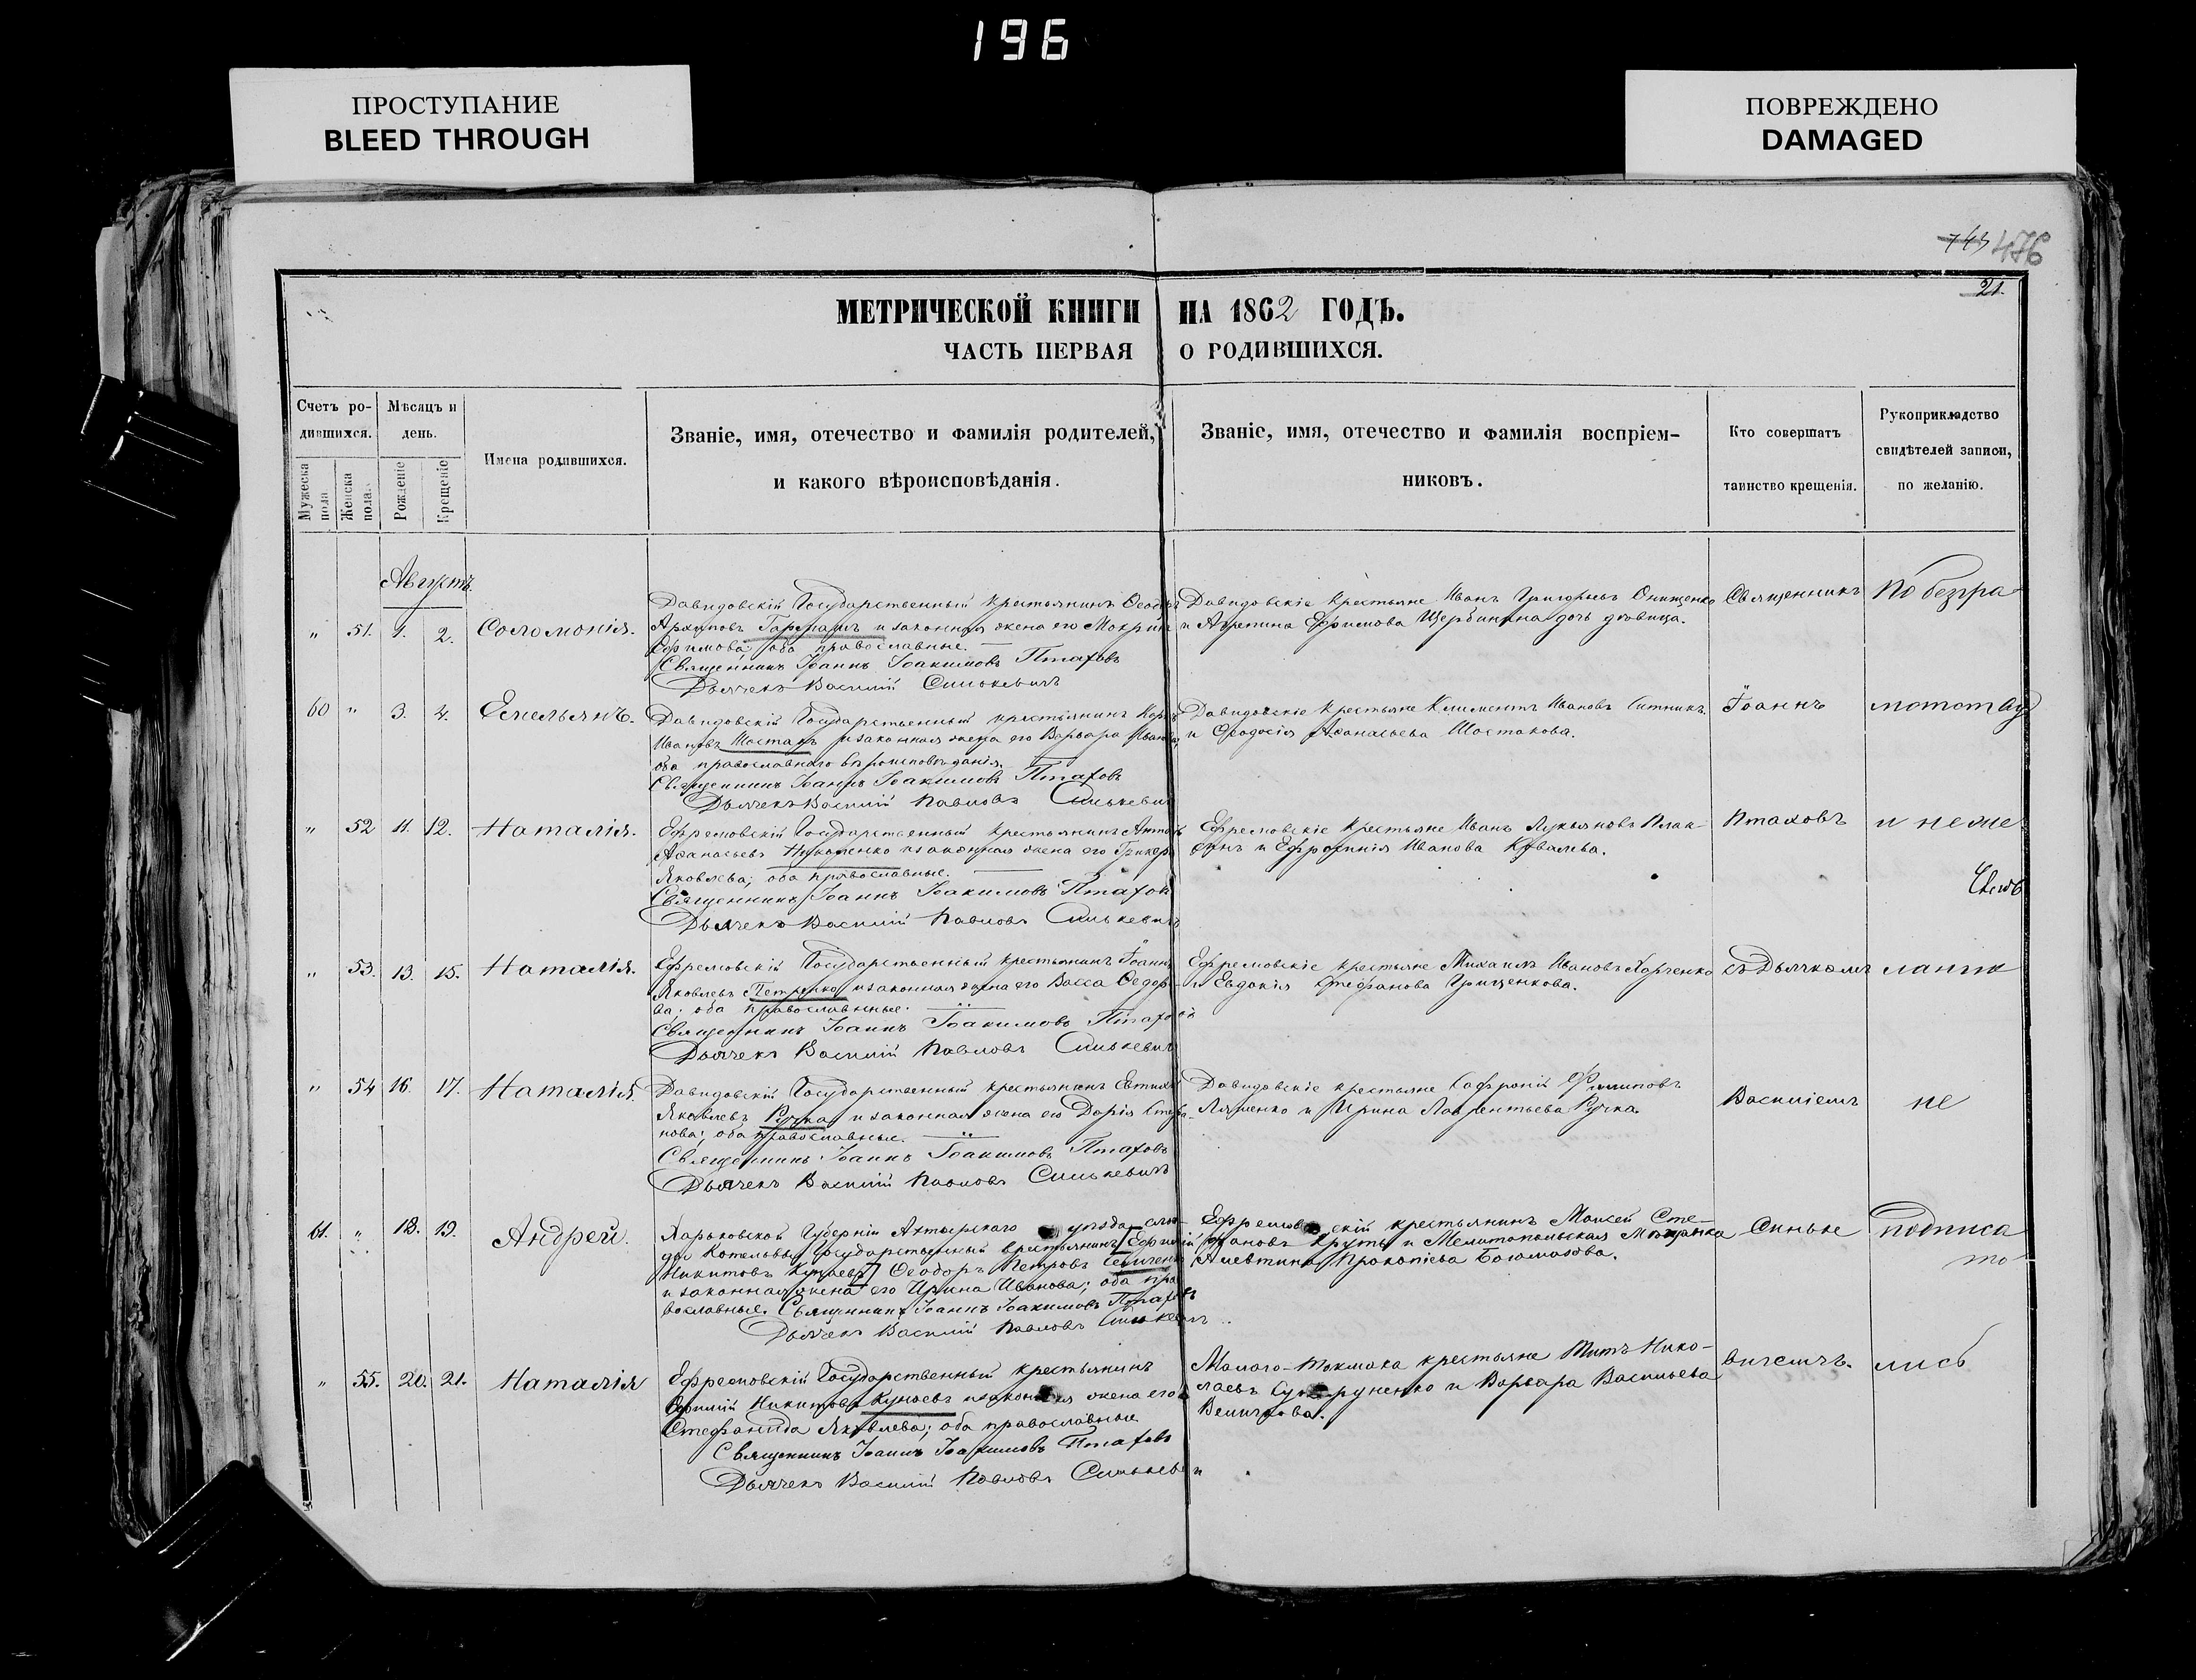 196
ПРОСТУПАНИЕ
BLEED THROUGH
ПОВРЕЖДЕНО
DAMAGED
743 476
21.
МЕТРИЧЕСКОЙ КНИГИ НА 1862 ГОДЪ.
ЧАСТЬ ПЕРВАЯ О РОДИВШИХСЯ.
Счетъ ро-
дившихся.
Мужеска пола
Женска пола.
Мѣсяцъ и
день.
Рожденіе
Крещеніе
Имена родившихся.
Званіе, имя, отечество и фамилія родителей,
и какого вѣроисповѣданія.
Званіе, имя, отечество и фамилія воспріем-
никовъ.
Кто совершатъ
таинство крещенія.
Рукоприкладство
свидѣтелей записи,
по желанію.
Августъ
" 51. 1. 2. Соломонія.
Давидовскій Государственный крестьянинъ Ѳеодоръ
Архиповъ и законная жена его Мокрина
Ефимова, оба православные.
Священникъ Іоаннъ Іоакимовъ Птаховъ
Дьячекъ Василій Синькевичъ
Давидовскіе крестьяне Иванъ Григорьевъ Онищенко
и Агрипина Ефимова Щербинина дочь дѣвица.
Священникъ
По безгра
60 " 3. 4. Емельянъ.
Давидовскій Государственный крестьянинъ
Ивановъ Шостакъ и законная жена его Варвара Иванова,
оба православнаго вѣроисповѣданія.
Священникъ Іоаннъ Іоакимовъ Птаховъ
Дьячекъ Василій Павловъ Синькевичъ
Давидовскіе крестьяне Климентъ Ивановъ Ситникъ
и Ѳеодосія Аѳанасьева Шостакова.
Іоаннъ
мотству
" 52 11. 12. Наталія.
Ефремовскій Государственный крестьянинъ
Аѳанасьевъ и законная жена его
Яковлева; оба православные.
Священникъ Іоаннъ Іоакимовъ Птаховъ
Дьячекъ Василій Павловъ Синькевичъ
Ефремовскіе крестьяне Иванъ Лукьяновъ Плак-
синъ и Ефросинія Иванова Ковалева.
Птаховъ
и неже
" 53. 13. 15. Наталія.
Ефремовскій Государственный крестьянинъ Іоаннъ
Яковлевъ Петренко и законная жена его Васса Ѳедоро-
ва; оба православные.
Священникъ Іоаннъ Іоакимовъ Птаховъ
Дьячекъ Василій Павловъ Синькевичъ
Ефремовскіе крестьяне Михаилъ Ивановъ Харченко
и Евдокія Стефанова Грищенкова.
съ Дьячкомъ
ланію
" 54 16. 17. Наталія.
Давидовскій Государственный крестьянинъ Евтихій
Яковлевъ Ручка и законная жена его Дарія Стефа-
нова; оба православные.
Священникъ Іоаннъ Іоакимовъ Птаховъ
Дьячекъ Василій Павловъ Синькевичъ
Давидовскіе крестьяне Софроній Филиповъ
Ляшенко и Ирина Лаврентьева Ручка.
Василіемъ
не
61. " 18. 19. Андрей.
Харьковской Губерніи Ахтырскаго уѣзда сло-
ды Котельвы Государственный крестьянинъ [Ефимій
Никитовъ Кунаевъ] Ѳеодоръ Петровъ Семиченко
и законная жена его Ирина Иванова; оба пра-
вославные. Священникъ Іоаннъ Іоакимовъ Птаховъ
Дьячекъ Василій Павловъ Синькевичъ
Ефремовскій крестьянинъ Моисей Сте-
фановъ Крутъ и Мелитопольская Мѣщанка
Алевтина Прокопіева Богомазова.
Синьке
подписа
то
" 55. 20. 21. Наталія
Ефремовскій Государственный крестьянинъ
Ефимій Никитовъ Кунаевъ и законная жена его
Стефанида Яковлева; оба православные
Священникъ Іоаннъ Іоакимовъ Птаховъ
Дьячекъ Василій Павловъ Синькевичъ
Малаго-Токмака крестьяне Титъ Нико-
лаевъ и Варвара Васильева
Величкова.
вичемъ.
лись